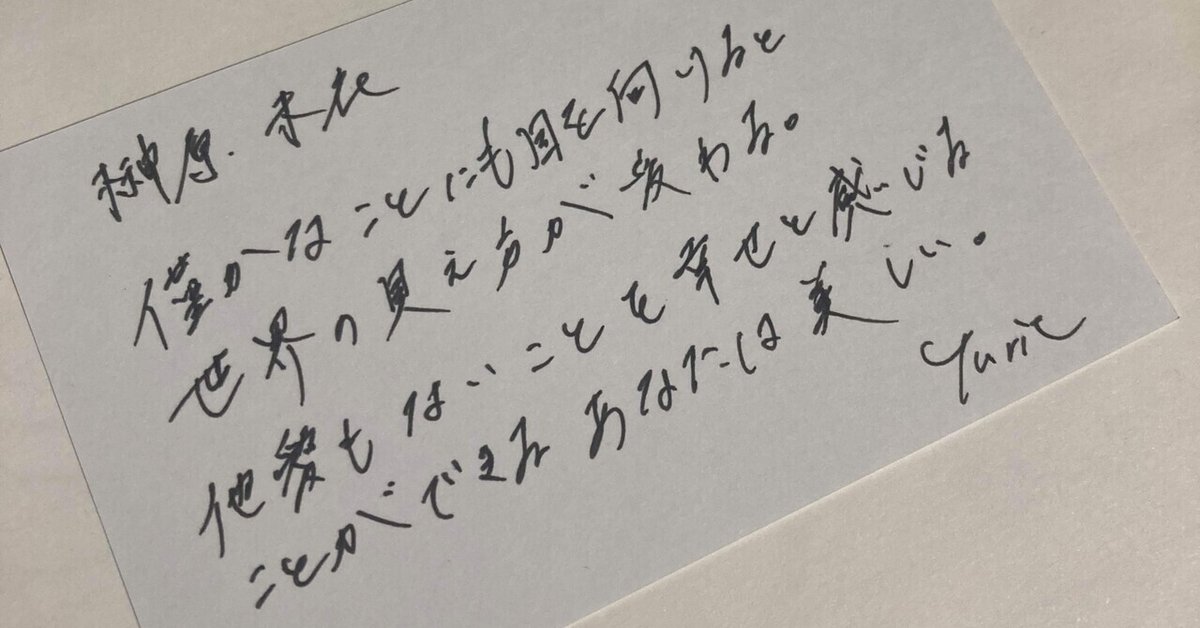 榊原. 未衣
僅かなことにも目を向けると
世界の見え方が変わる。
他愛もないことを幸せと感じる
ことができるあなたは美しい。
Yurie